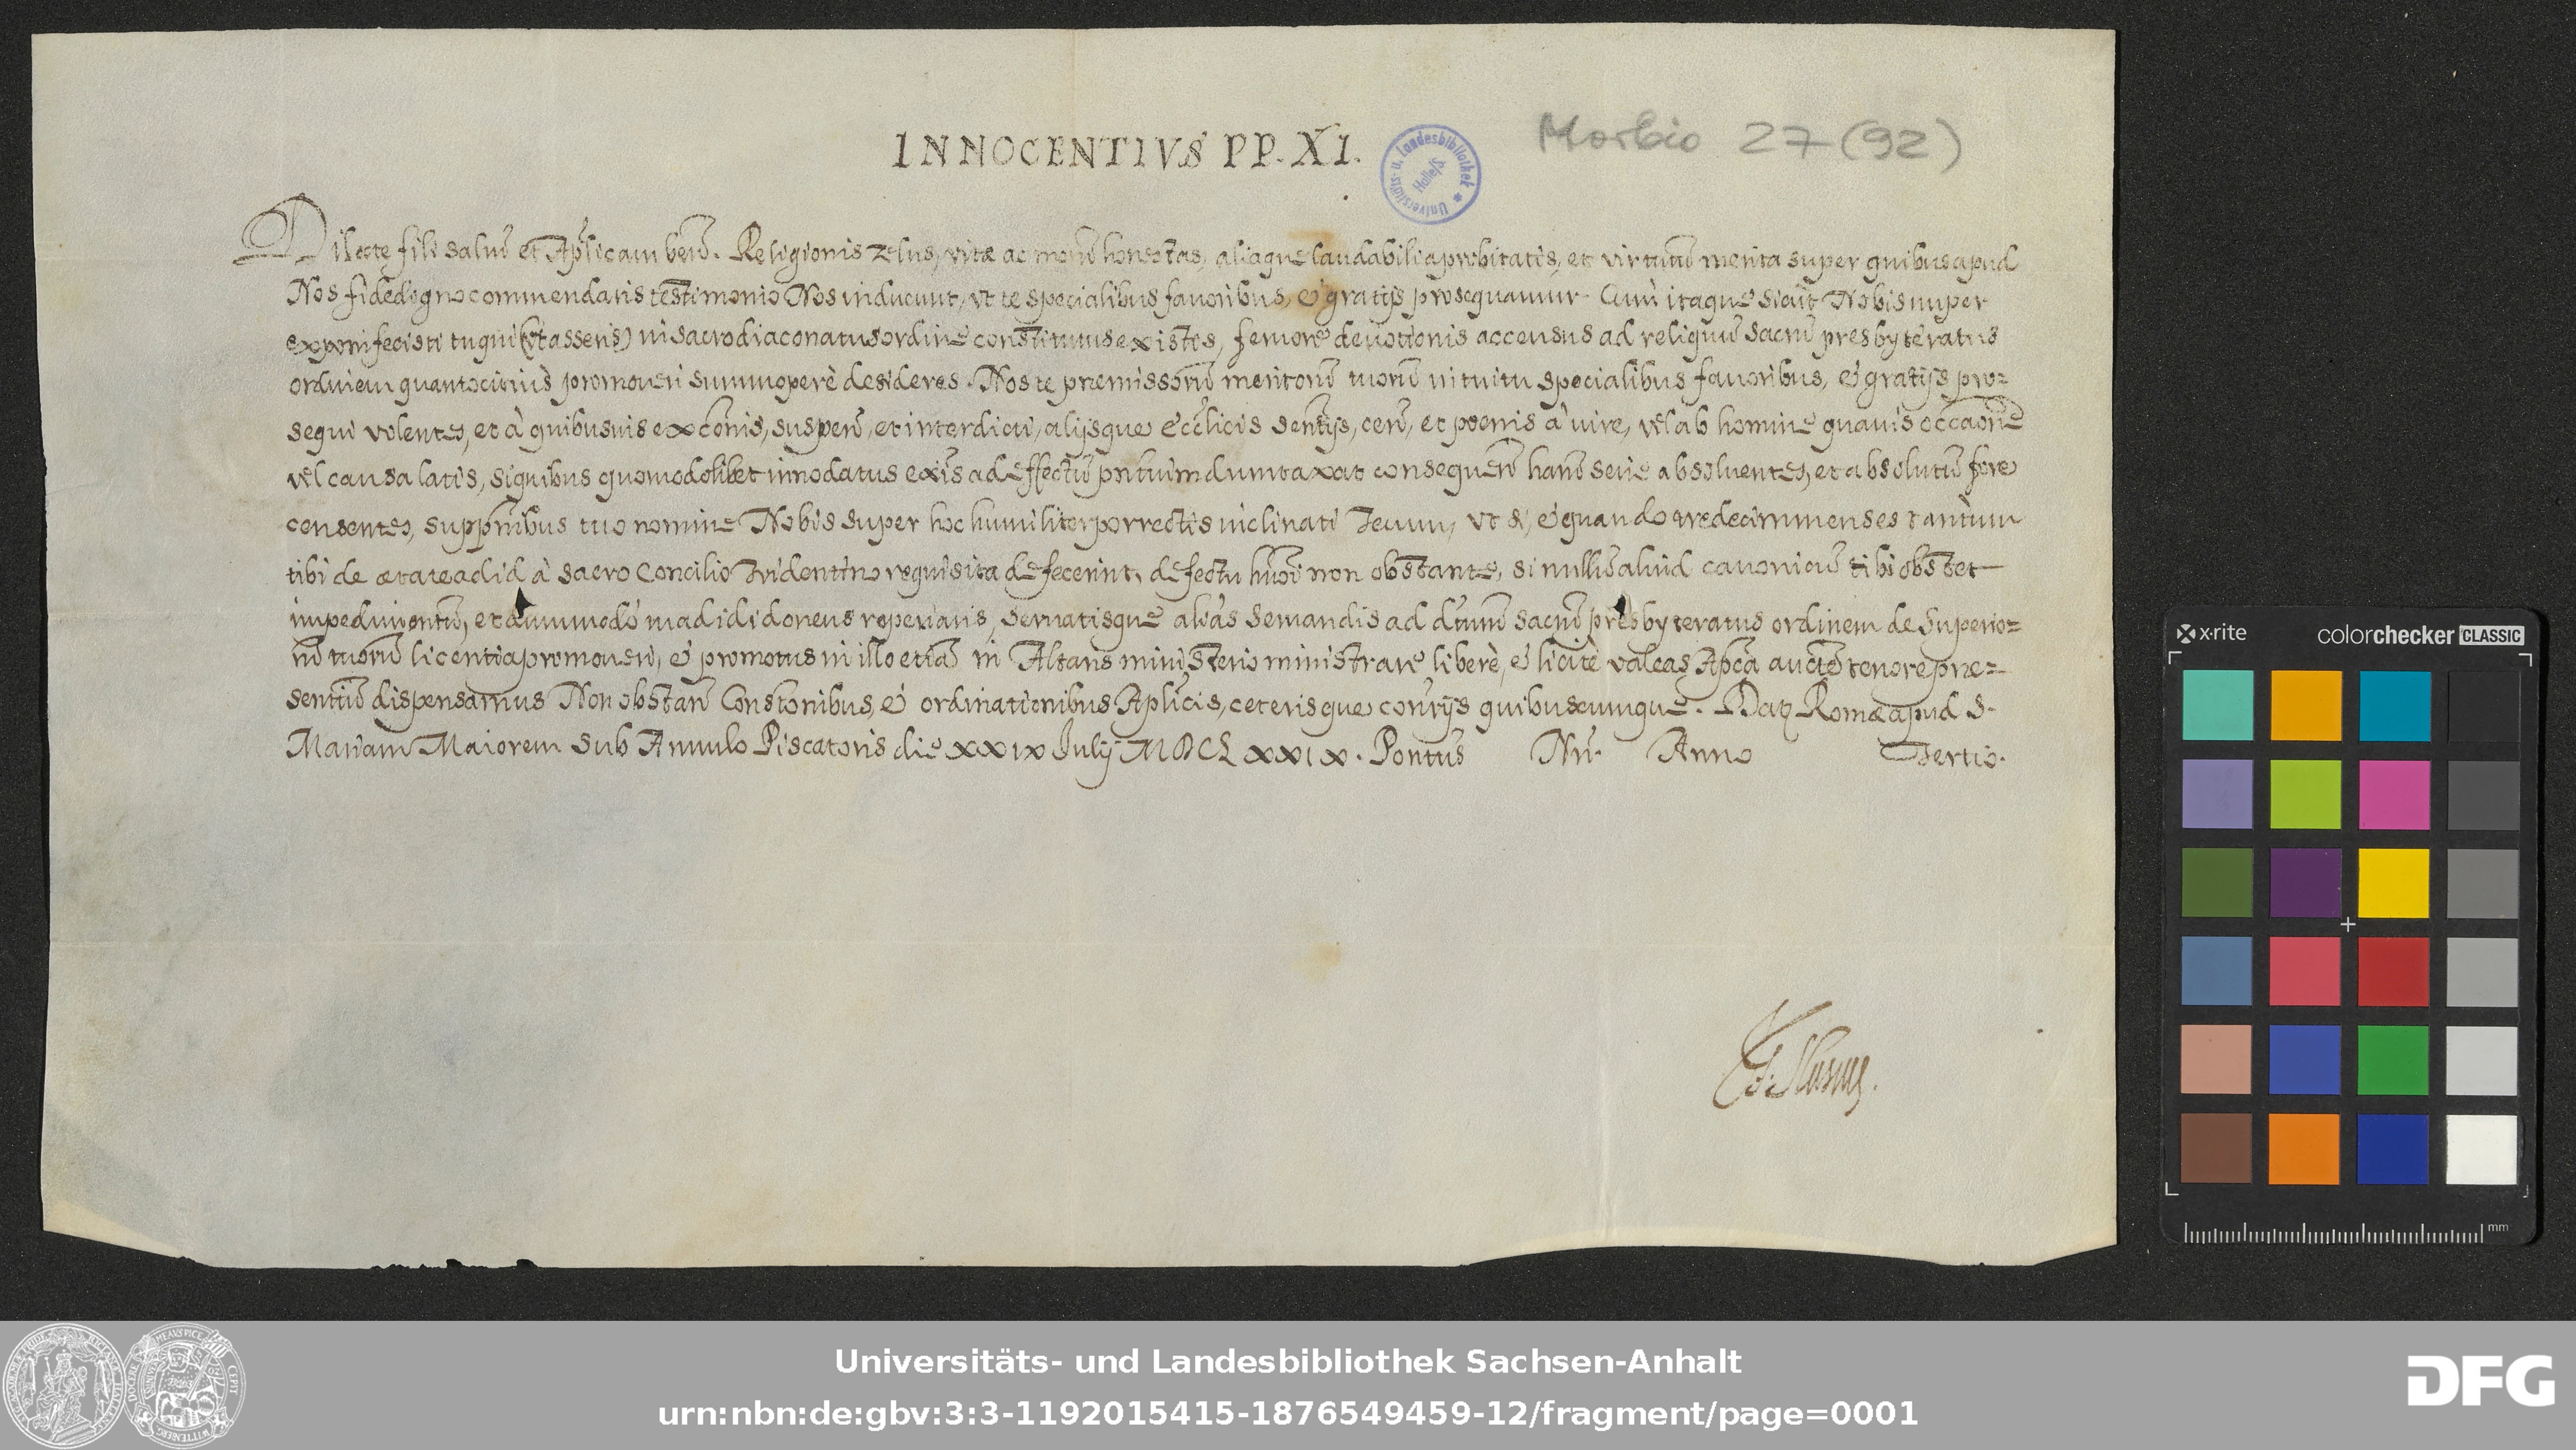 INNOCENTIVS PP. XI.
Morbio 27 (92)
Universitäts- u. Landesbibliothek * Halle/S
Dilecte fili salutē et Ap̄licam ben̄ē. Religionis zelus, vitæ ac morū honestas, aliaque laudabilia probitatis, et virtutū merita super quibus apud
Nos fidedigno commendaris testimonio Nos inducunt, ut te specialibus favoribus, et gratijs prosequamur. Cum itaque sicut Nobis nuper
exponi fecisti tu qui (ut asseris) in sacro diaconatus ordine constitutus existēs, fervore devotionis accensus ad reliquū sacrū presbyteratus
ordinem quantocitius promoveri summoperè desideres. Nos te præmissorū meritorū tuorū intuitu specialibus favoribus, et gratijs pro=
sequi volentes, et à quibusvis excōnis, suspen̄, et interdicti, alijsque ecc̄licis sent̄ijs, cen̄, et poenis à iure, vel ab homine quavis occāone
vel causa latis, si quibus quomodolibet innodatus exīs ad effectū p̄ntium dumtaxat consequen̄ harū serie absolventes, et absolutū fore
censentes, supp̄nibus tuo nomine Nobis super hoc humiliter porrectis inclinati Tecum, ut si, et quando tredecim menses tantùm
tibi de ætate ad id à sacro Concilio Tridentino requisita defecerint, defectu hmōi non obstante, si nullū aliud canonicū tibi obstet
impedimentū, et dummodò in ad id idoneus reperiaris, servatisque aliās servandis ad dictum sacrū presbyteratus ordinem de Superio=
rū tuorū licentia promoveri, et promotus in illo etiā in Altaris ministerio ministrare liberè, et licitè valeas Ap̄ca auctē tenore præ=
sentiū dispensamus Non obstan̄ Constōnibus, et ordinationibus Ap̄licis, ceterisque contrījs quibuscumque. Datȝ Romæ apud S.
Mariam Maiorem sub Annulo Piscatoris die XXIX Julij MDCLXXIX. Pontūs Nri. Anno Tertio.
x-rite colorchecker CLASSIC
mm
Universitäts- und Landesbibliothek Sachsen-Anhalt
urn:nbn:de:gbv:3:3-1192015415-1876549459-12/fragment/page=0001
DFG